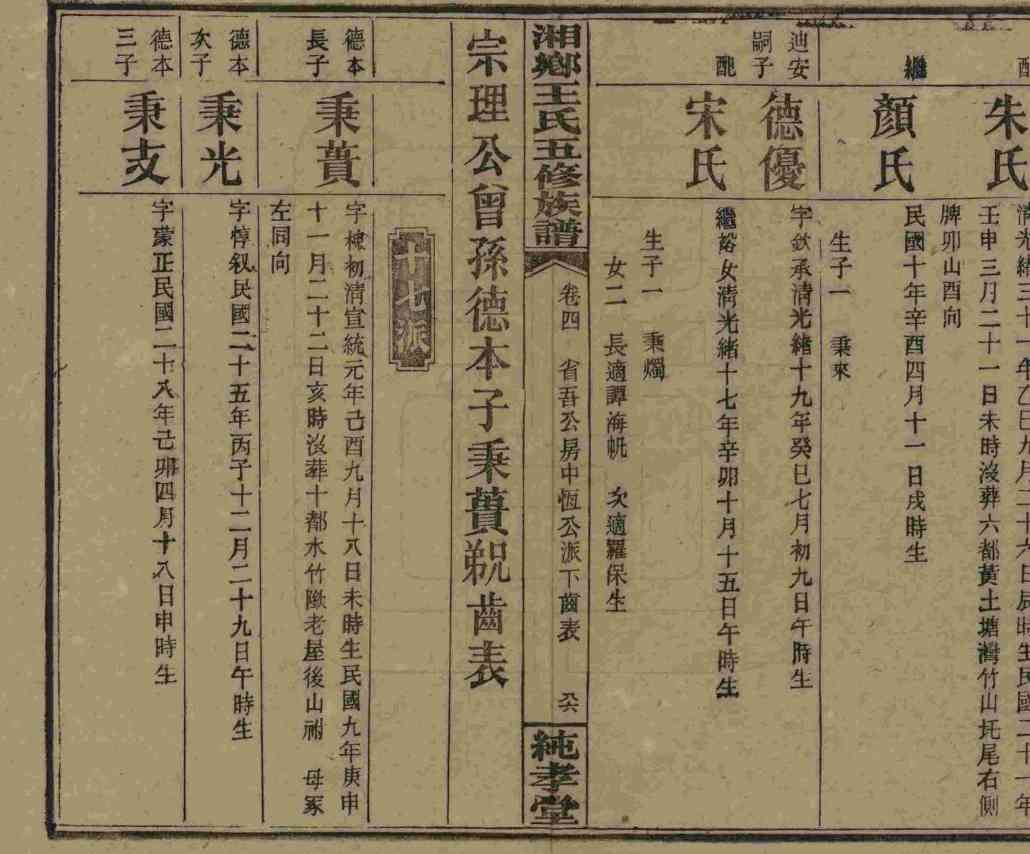 配
朱氏
清光緒三十一年乙巳九月二十六日辰時生民國二十一年
壬申三月二十一日未時沒葬六都黃土塘灣竹山圫尾右側
脾卯山酉向
繼
顏氏
民國十年辛酉四月十一日戌時生
生子一 秉來
迪安
嗣子
德優
字欽承清光緒十九年癸巳七月初九日午時生
配
宋氏
繼裕女清光緒十七年辛卯十月十五日午時生
生子一 秉燭
女二 長適譚海帆 次適羅保生
湘鄉王氏五修族譜
卷四 省吾公房中恆公派下齒表 六
純孝堂
宗理公曾孫德本子秉蕢覛齒表
十七派
德本
長子
秉蕢
字 初清宣統元年己酉九月十八日未時生民國九年庚申
十一月二十二日亥時沒葬十都水竹 老屋後山祔 母冢
左同向
德本
次子
秉光
字惇叙民國二十五年丙子十二月二十九日午時生
德本
三子
秉支
字蒙正民國二十八年己卯四月十八日申時生